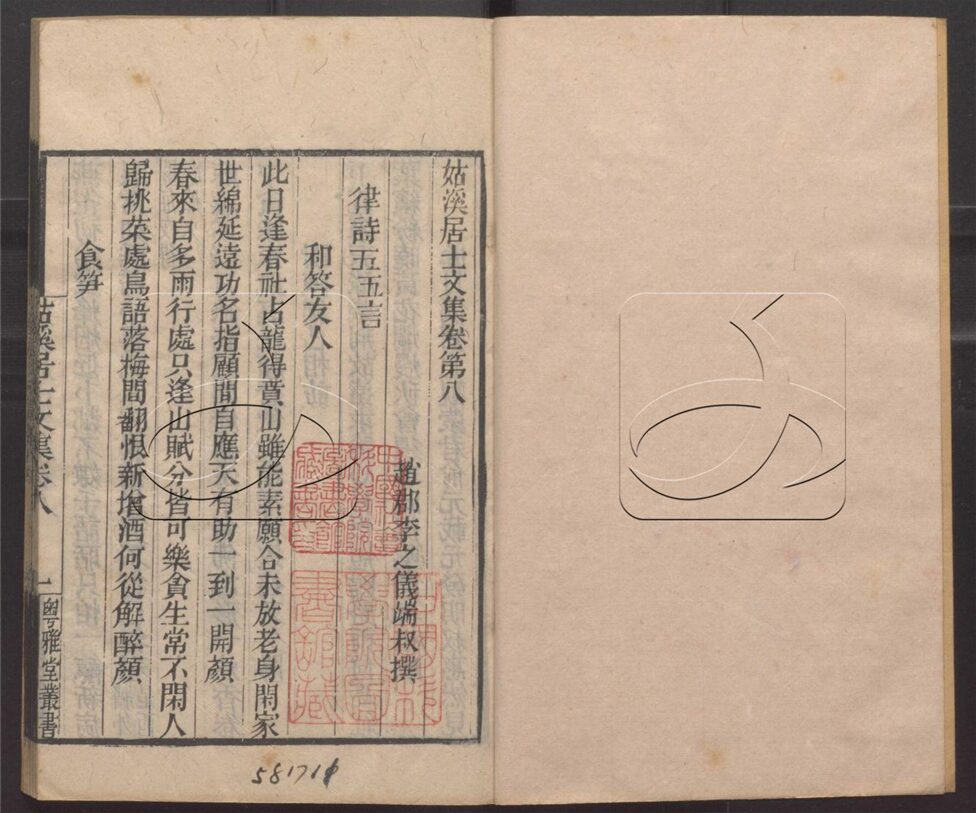 姑溪居士文集卷第八
趙郡李之儀端叔撰
律詩五五言
和答友人
此日逢春社占龍得賁山雖能素願合未放老身閑家
世綿延遠功名指顧間自應天有助一到一開顏
春來自多雨行處只逢山賦分皆可樂貪生常不閑人
歸挑菜處鳥語落梅間翻恨新増酒何從解醉顏
食筍
姑溪居士文集卷八
一
粵雅堂叢書
581711